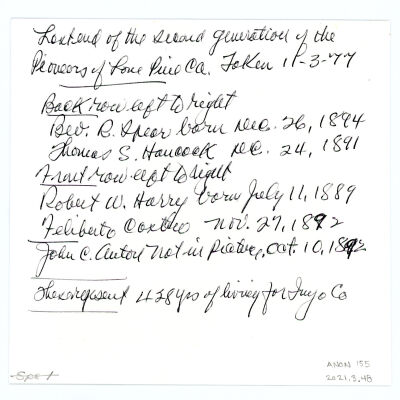 Last end of the second generation of the
Pioneers of Lone Pine Ca. Taken 11-3-77
Back row left to right
Bev. R. Spear born Dec. 26, 1894
Thomas S. Hancock Dec. 24, 1891
Front row left to right
Robert W. Harry born July 11, 1889
Feliberto Nov. 27, 1892
John C. Anton Not in Picture, Oct. 10, 1892
These represent 428 yrs of living for Inyo Co
Spet
ANON 155
2021.3.48